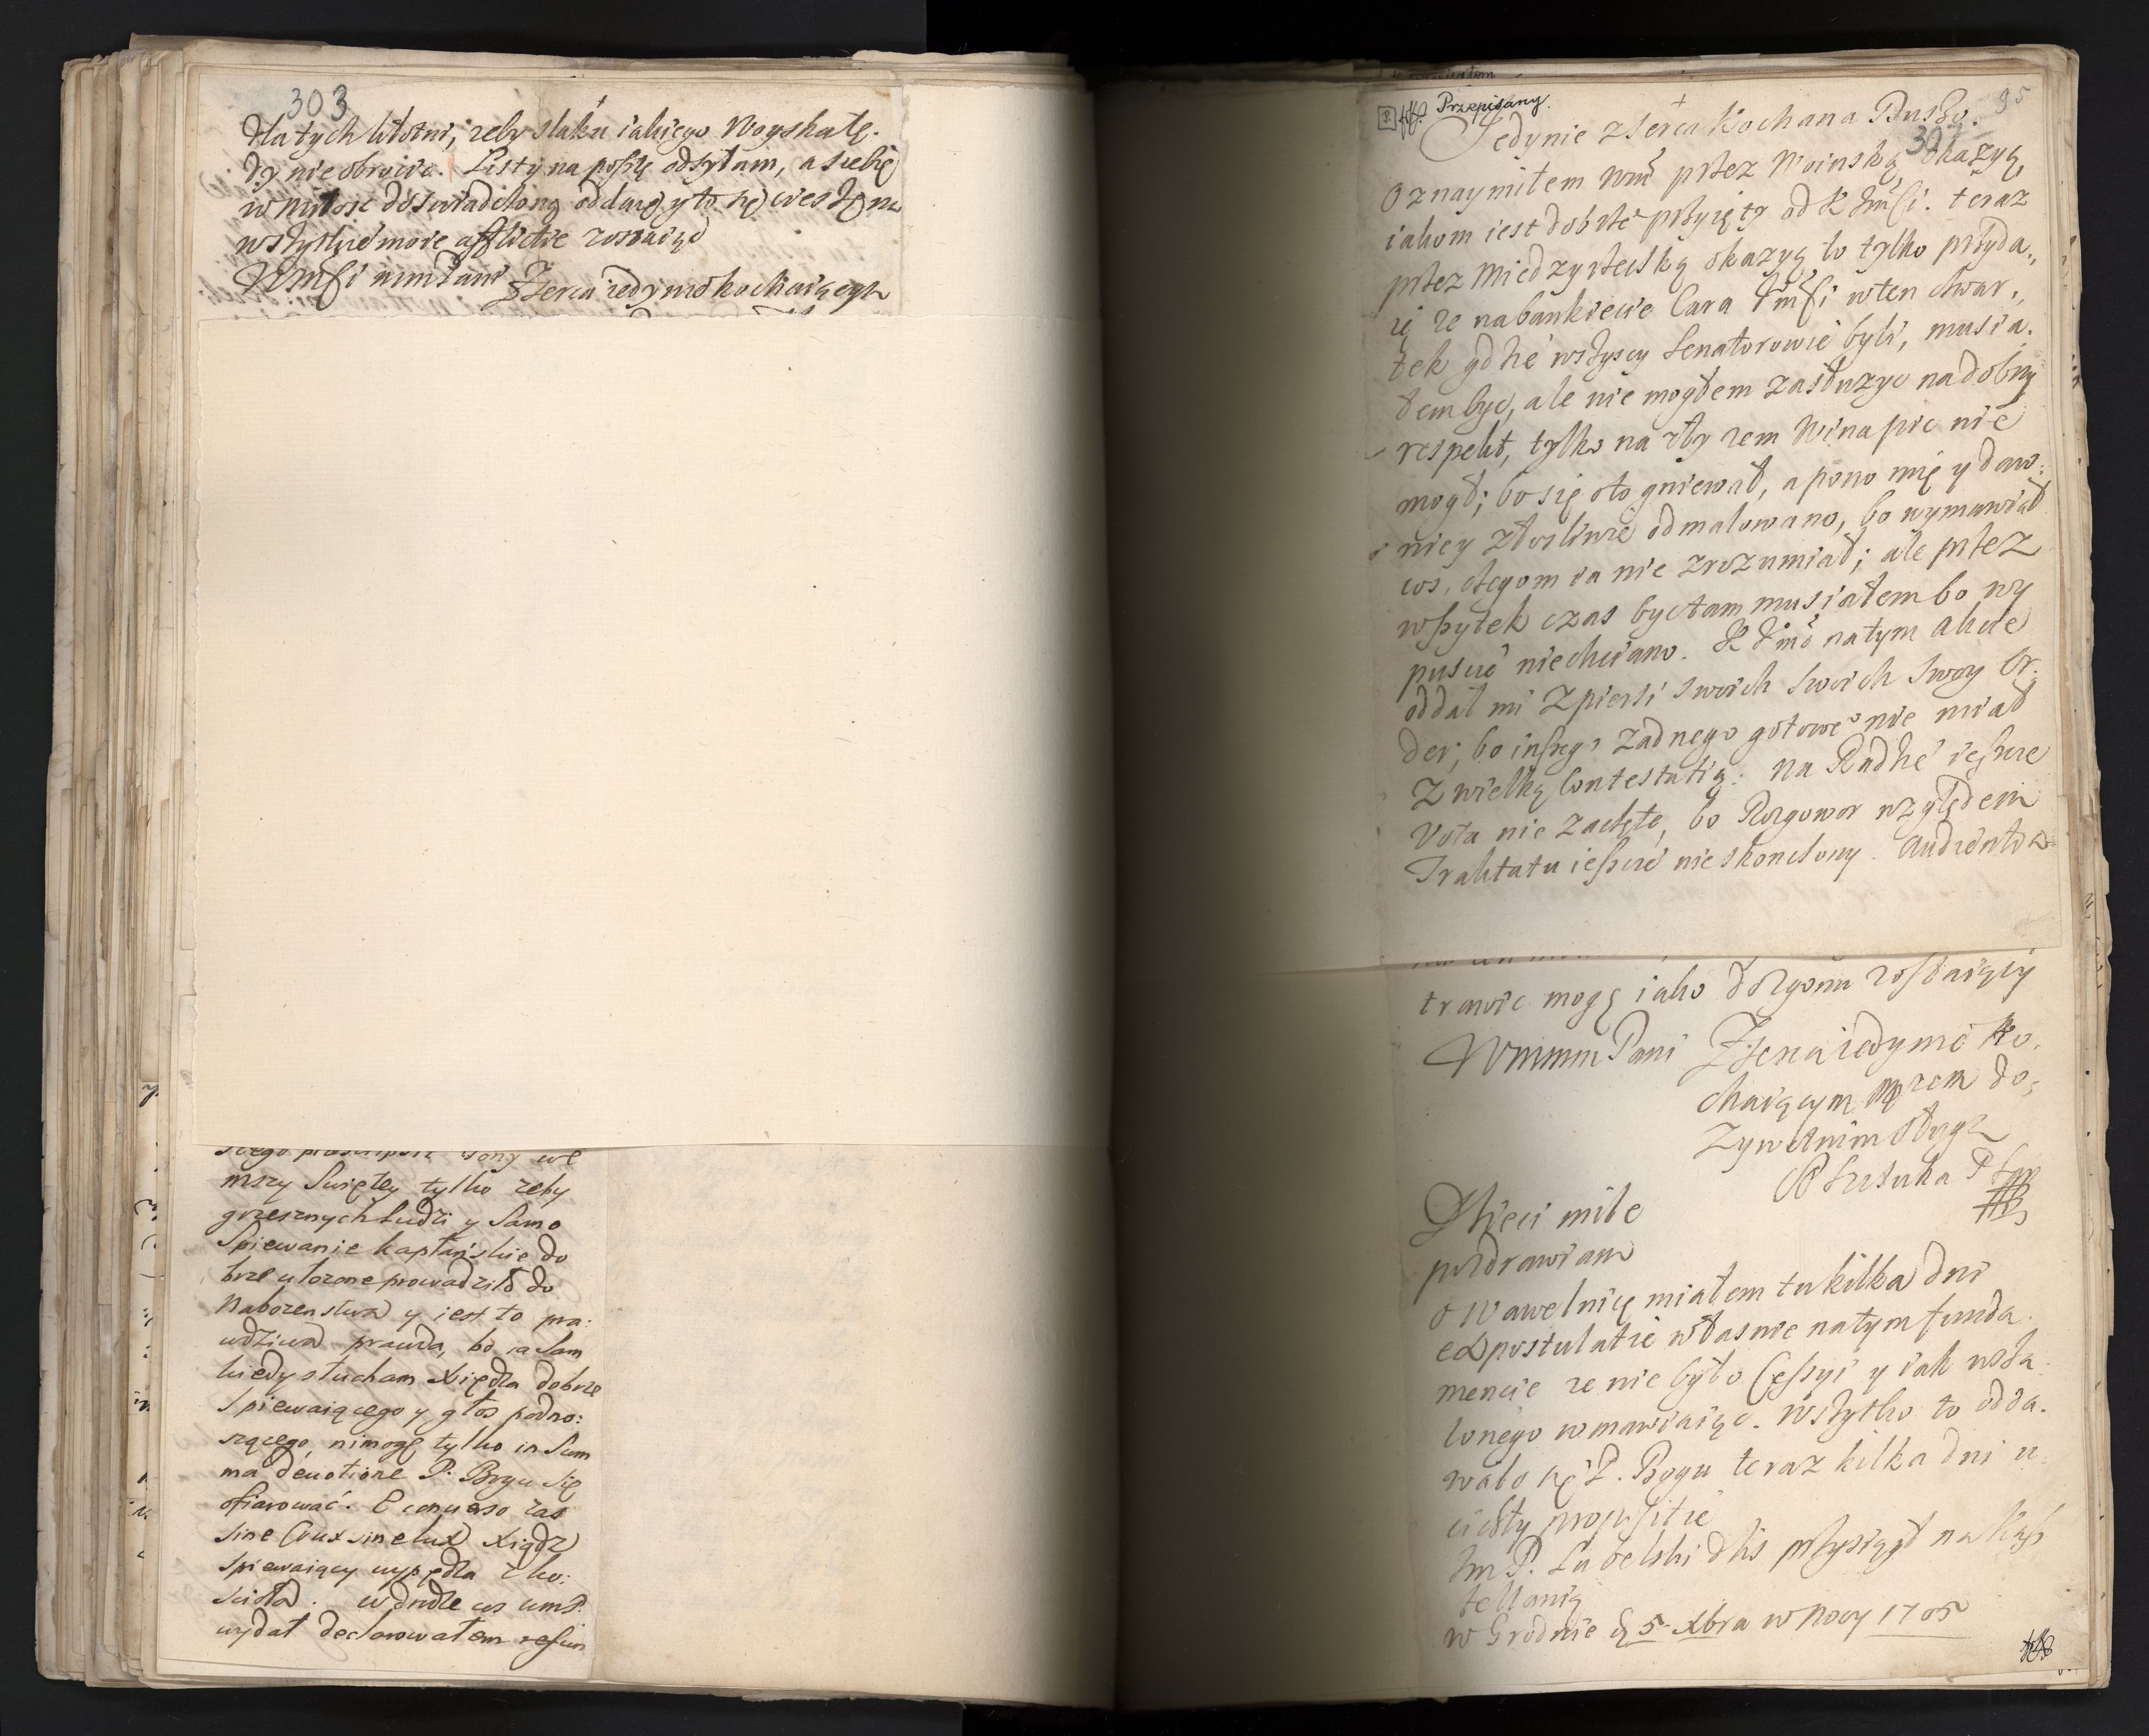 303
dla tych lutorni, zeby slaku iakiego Woyska tę.
dy nie obrucic. Listy na posztę odsyłam, a siebie
w miłosc doswiadczoną oddaię y to się cieszę na
wszystkie moie afflictie zostaiąc
WmSci mm Pani Zserca iedynie kochaiącym
mszy Swiętey tylko zeby
grzesznych ludzi y samo
Spiewanie kapłanskie do
brze ułozone prowadziło do
Nabozenstwa y iest to pra:
wdziwa prawda, bo ia sam
kiedy słucham Xiędza dobrze
Spiewaiącego y głos podno:
szącego, nimogę tylko in Sum
ma deuotione P. Bogu się
ofiarować. E conuerso zas
sine Crux sine lux Xiądz
Spiewaiący wypędza z ko:
scioła.
wydał declarowałem
Przepisany.
95
303
Jedynie zserca Kochana Duszo.
Oznaymiłem Wm przez Woinską okazyą,
iakom iest dobrze przyięty od K JmSci. teraz
przez Miedzyrzecką okazyą to tylko przyda.,
ię ze na bankiecie Cara JmSci w ten czwar.,
tek gdzie wszyscy Senatorowie byli, musia.
łem byc, ale nie mogłem zasłuzyc na dobry
respekt, tylko na zły zem Wina pic nie
mogł; bo się oto gniewał, a pono mię y daw:
niey złosliwie odmalowano, bo wymawiał
cos, czegom ia nie zrozumiał; ale przez
wszytek czas byc tam musiałem bo wy
puscic niechciano. K Jmc na tym akcie
oddał mi z piersi swoich swoich swoy Or:
der, bo inszego zadnego gotowego nie miał
z wielką Contestatią. Na Radzie ieszcze
Vota nie zaczęte, bo Rozgowor względem
Traktatu ieszcze nieskonczony.
trawic mogę iako dozgonu zostaiący
Wmmm Pani Zserca iedynie Ko.
chaiącym Męzem do:
zywotnim sługą
Dzieci miłe
pozdrawiam
o Wawelnicę miałem tu kilka dni
expostulatie własnie na tym funda.
mencie ze nie było Cessyi y iak usta
lonego wmawiaiąc. Wszytko to odda.
wało się P. Bogu teraz kilka dni u
cichły propositie
Im P. dzis przysiągł na Kasz
tellanią
w Grodnie d 5. Xbra w Nocy 1705